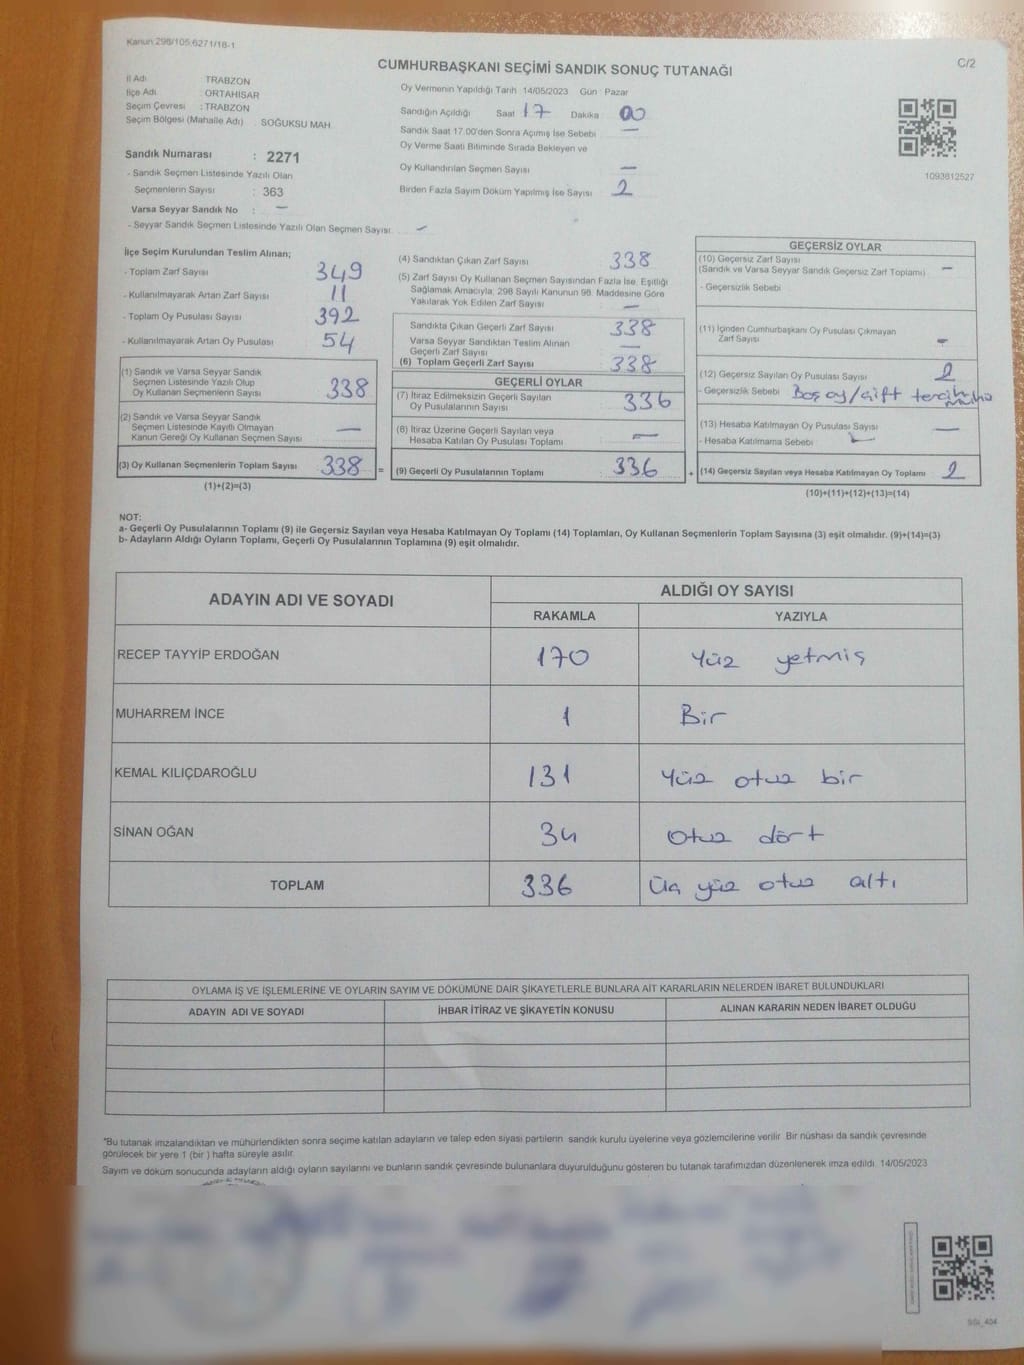 Kanun 298/105.6271/18-1
C/2
CUMHURBAŞKANI SEÇİMİ SANDIK SONUÇ TUTANAĞI
İl Adı TRABZON
İlçe Adı : ORTAHİSAR
Seçim Çevresi : TRABZON
Seçim Bölgesi (Mahalle Adı) : SOĞUKSU MAH.
Sandık Numarası : 2271
- Sandık Seçmen Listesinde Yazılı Olan
Seçmenlerin Sayısı : 363
Varsa Seyyar Sandık No : —
- Seyyar Sandık Seçmen Listesinde Yazılı Olan Seçmen Sayısı: —
Oy Vermenin Yapıldığı Tarih 14/05/2023 Gün : Pazar
Sandığın Açıldığı Saat 17 Dakika 00
Sandık Saat 17.00'den Sonra Açımış İse Sebebi —
Oy Verme Saati Bitiminde Sırada Bekleyen ve
Oy Kullandırılan Seçmen Sayısı —
Birden Fazla Sayım Döküm Yapılmış İse Sayısı 2
1093812527
İlçe Seçim Kurulundan Teslim Alınan;
- Toplam Zarf Sayısı 349
- Kullanılmayarak Artan Zarf Sayısı 11
- Toplam Oy Pusulası Sayısı 392
- Kullanılmayarak Artan Oy Pusulası 54
(1) Sandık ve Varsa Seyyar Sandık
Seçmen Listesinde Yazılı Olup
Oy Kullanan Seçmenlerin Sayısı 338
(2) Sandık ve Varsa Seyyar Sandık
Seçmen Listesinde Kayıtlı Olmayan
Kanun Gereği Oy Kullanan Seçmen Sayısı —
(3) Oy Kullanan Seçmenlerin Toplam Sayısı 338 =
(1)+(2)=(3)
(4) Sandıktan Çıkan Zarf Sayısı 338
(5) Zarf Sayısı Oy Kullanan Seçmen Sayısından Fazla İse, Eşitliği
Sağlamak Amacıyla, 298 Sayılı Kanunun 98. Maddesine Göre
Yakılarak Yok Edilen Zarf Sayısı —
Sandıkta Çıkan Geçerli Zarf Sayısı 338
Varsa Seyyar Sandıktan Teslim Alınan
Geçerli Zarf Sayısı —
(6) Toplam Geçerli Zarf Sayısı 338
GEÇERLİ OYLAR
(7) İtiraz Edilmeksizin Geçerli Sayılan
Oy Pusulalarının Sayısı 336
(8) İtiraz Üzerine Geçerli Sayılan veya
Hesaba Katılan Oy Pusulası Toplamı —
(9) Geçerli Oy Pusulalarının Toplamı 336 +
GEÇERSİZ OYLAR
(10) Geçersiz Zarf Sayısı
(Sandık ve Varsa Seyyar Sandık Geçersiz Zarf Toplamı) —
- Geçersizlik Sebebi
(11) İçinden Cumhurbaşkanı Oy Pusulası Çıkmayan
Zarf Sayısı —
(12) Geçersiz Sayılan Oy Pusulası Sayısı 2
- Geçersizlik Sebebi Boş oy/çift tercih
(13) Hesaba Katılmayan Oy Pusulası Sayısı —
- Hesaba Katılmama Sebebi
(14) Geçersiz Sayılan veya Hesaba Katılmayan Oy Toplamı 2
(10)+(11)+(12)+(13)=(14)
NOT:
a- Geçerli Oy Pusulalarının Toplamı (9) ile Geçersiz Sayılan veya Hesaba Katılmayan Oy Toplamı (14) Toplamları, Oy Kullanan Seçmenlerin Toplam Sayısına (3) eşit olmalıdır. (9)+(14)=(3)
b- Adayların Aldığı Oyların Toplamı, Geçerli Oy Pusulalarının Toplamına (9) eşit olmalıdır.
ADAYIN ADI VE SOYADI
ALDIĞI OY SAYISI
RAKAMLA YAZIYLA
RECEP TAYYİP ERDOĞAN 170 Yüz yetmiş
MUHARREM İNCE 1 Bir
KEMAL KILIÇDAROĞLU 131 Yüz otuz bir
SİNAN OĞAN 34 Otuz dört
TOPLAM 336 Üç yüz otuz altı
OYLAMA İŞ VE İŞLEMLERİNE VE OYLARIN SAYIM VE DÖKÜMÜNE DAİR ŞİKAYETLERLE BUNLARA AİT KARARLARIN NELERDEN İBARET BULUNDUKLARI
ADAYIN ADI VE SOYADI İHBAR İTİRAZ VE ŞİKAYETİN KONUSU ALINAN KARARIN NEDEN İBARET OLDUĞU
*Bu tutanak imzalandıktan ve mühürlendikten sonra seçime katılan adayların ve talep eden siyasi partilerin sandık kurulu üyelerine veya gözlemcilerine verilir. Bir nüshası da sandık çevresinde
görülecek bir yere 1 (bir ) hafta süreyle asılır.
Sayım ve döküm sonucunda adayların aldığı oyların sayılarını ve bunların sandık çevresinde bulunanlara duyurulduğunu gösteren bu tutanak tarafımızdan düzenlenerek imza edildi. 14/05/2023